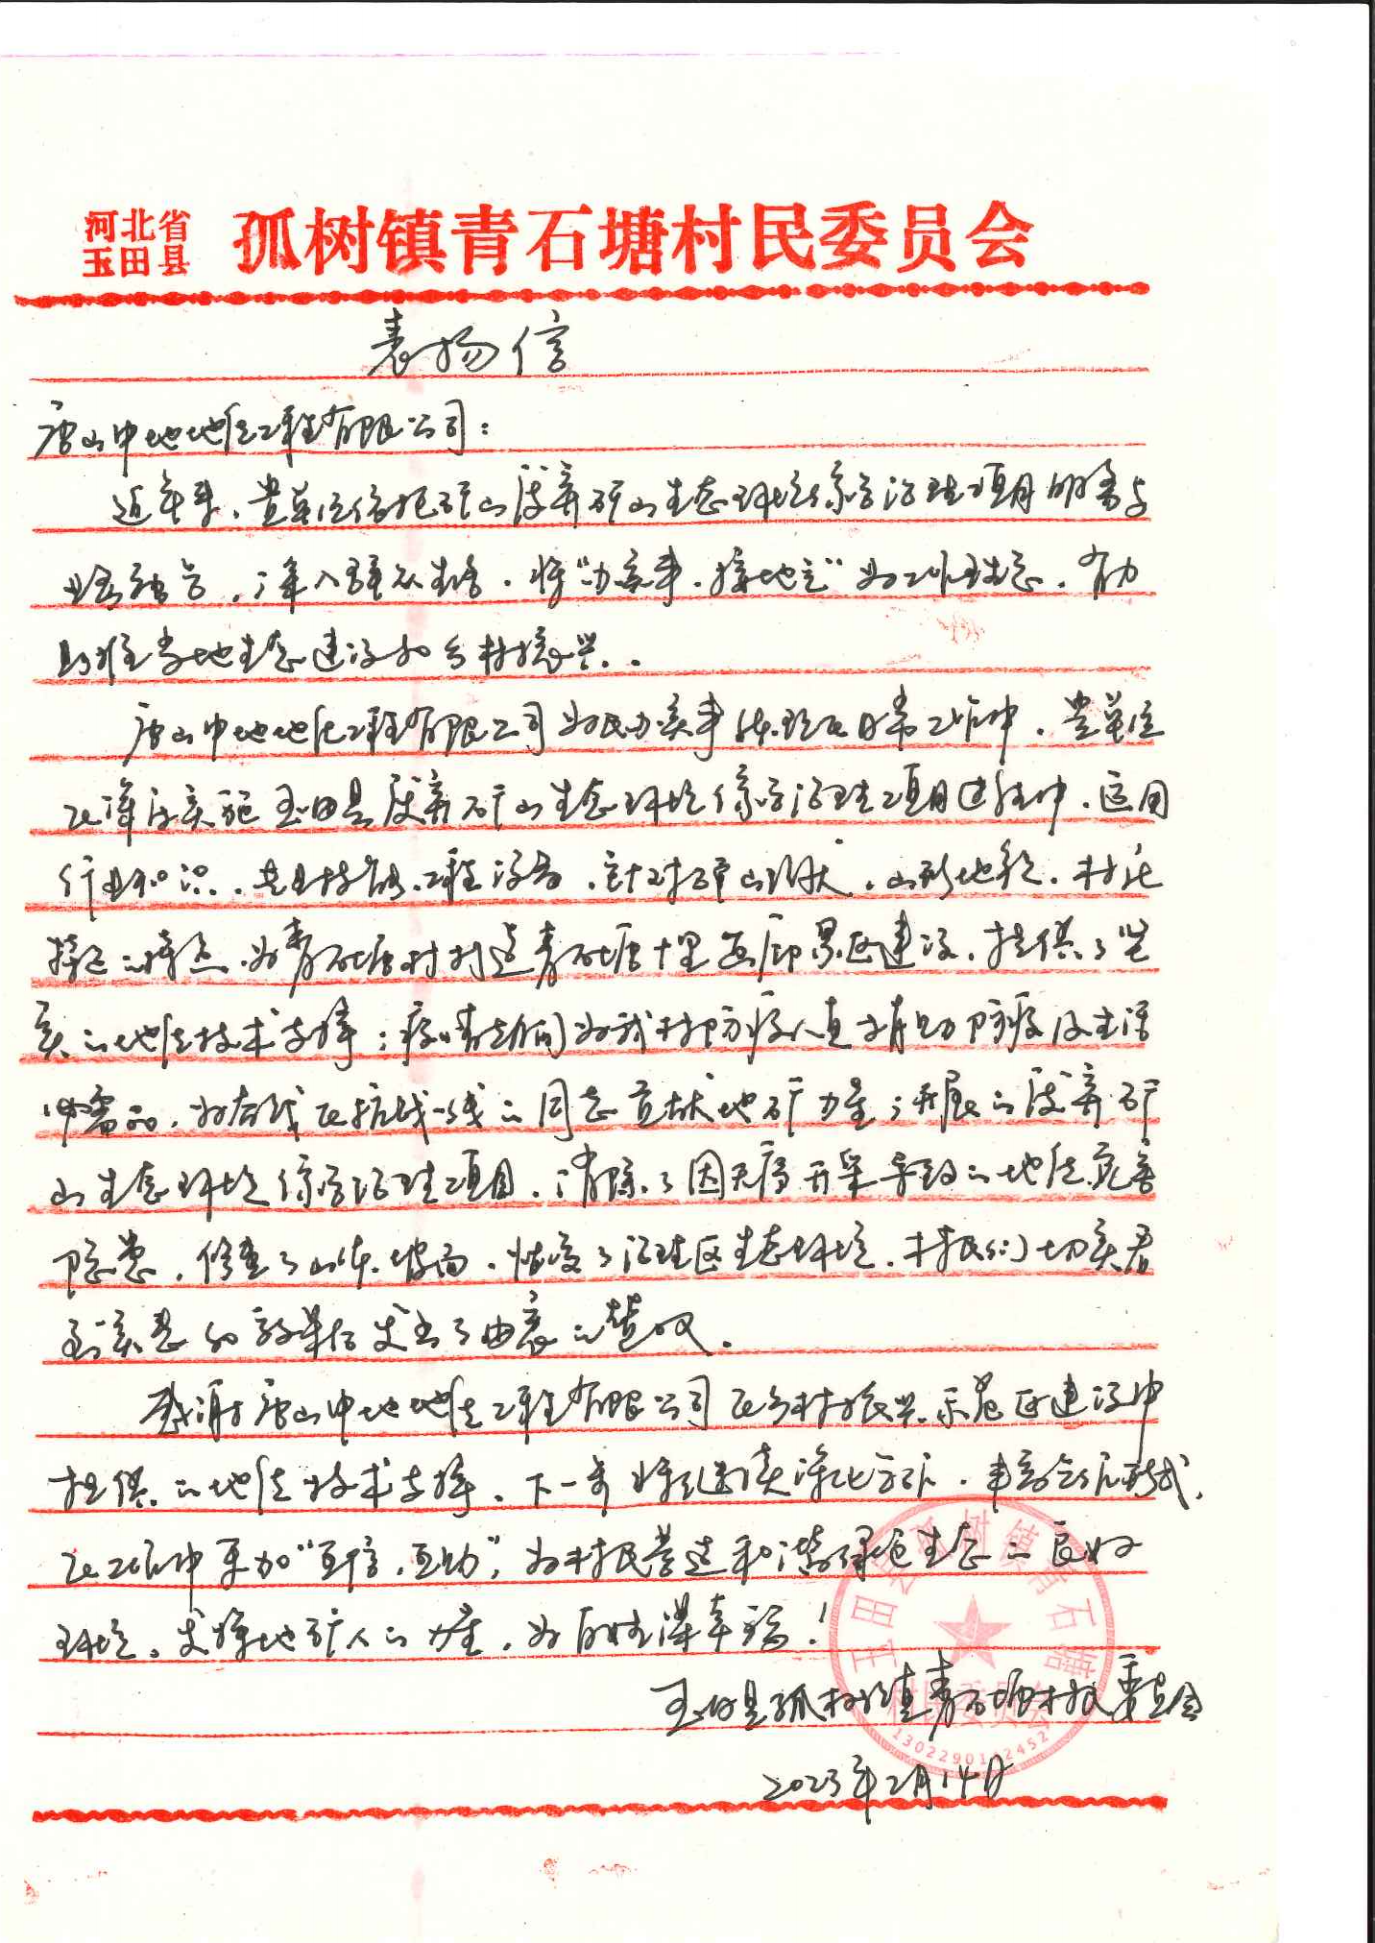 河北省
玉田县
孤树镇青石塘村民委员会
表扬信
唐山中地地质工程有限公司：
近年来，贵单位依托矿山废弃矿山生态环境修复治理项目服务与
业务融合，深入群众生活，将“办实事，接地气”为工作理念，有力
助推当地生态建设和乡村振兴。
唐山中地地质工程有限公司为民办实事体现在日常工作中，贵单位
在具体实施玉田县废弃矿山生态环境修复治理项目过程中，运用
行业知识、专业技能、工程设备，针对矿山现状，山形地貌，村庄
接近的特点，为青石塘村打造青石塘十里画廊景区建设，提供了坚
实的地质技术支撑；疫情期间为我村防疫人员捐助防疫及生活
必需品，为奋战在抗战一线的同志贡献地矿力量；开展的废弃矿
山生态环境修复治理项目，消除了因无序开采导致的地质灾害
隐患，修整了山体坡面，恢复了治理区生态环境，村民们切实看
到实惠的效果后发出了由衷的赞叹。
感谢唐山中地地质工程有限公司在乡村振兴示范区建设中
提供的地质技术支撑，下一步将继续深化
在工作中更加“互信，互助”，为村民营造和谐绿色生态的良好
环境，发挥地矿人的力量，为百姓谋幸福！
玉田县孤树镇青石塘村民委员会
2023年2月14日
玉田县孤树镇青石塘
村民委员会